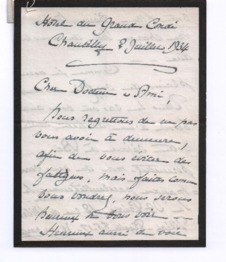 Hôtel du Grand Condé
Chantilly 8 Juillet 1924
Cher Docteur & Ami,
Nous regrettons de ne pas
vous avoir à demeure,
afin de vous éviter des
fatigues, mais faites comme
vous voudrez, nous serons
heureux de vous voir
Heureux aussi de voir